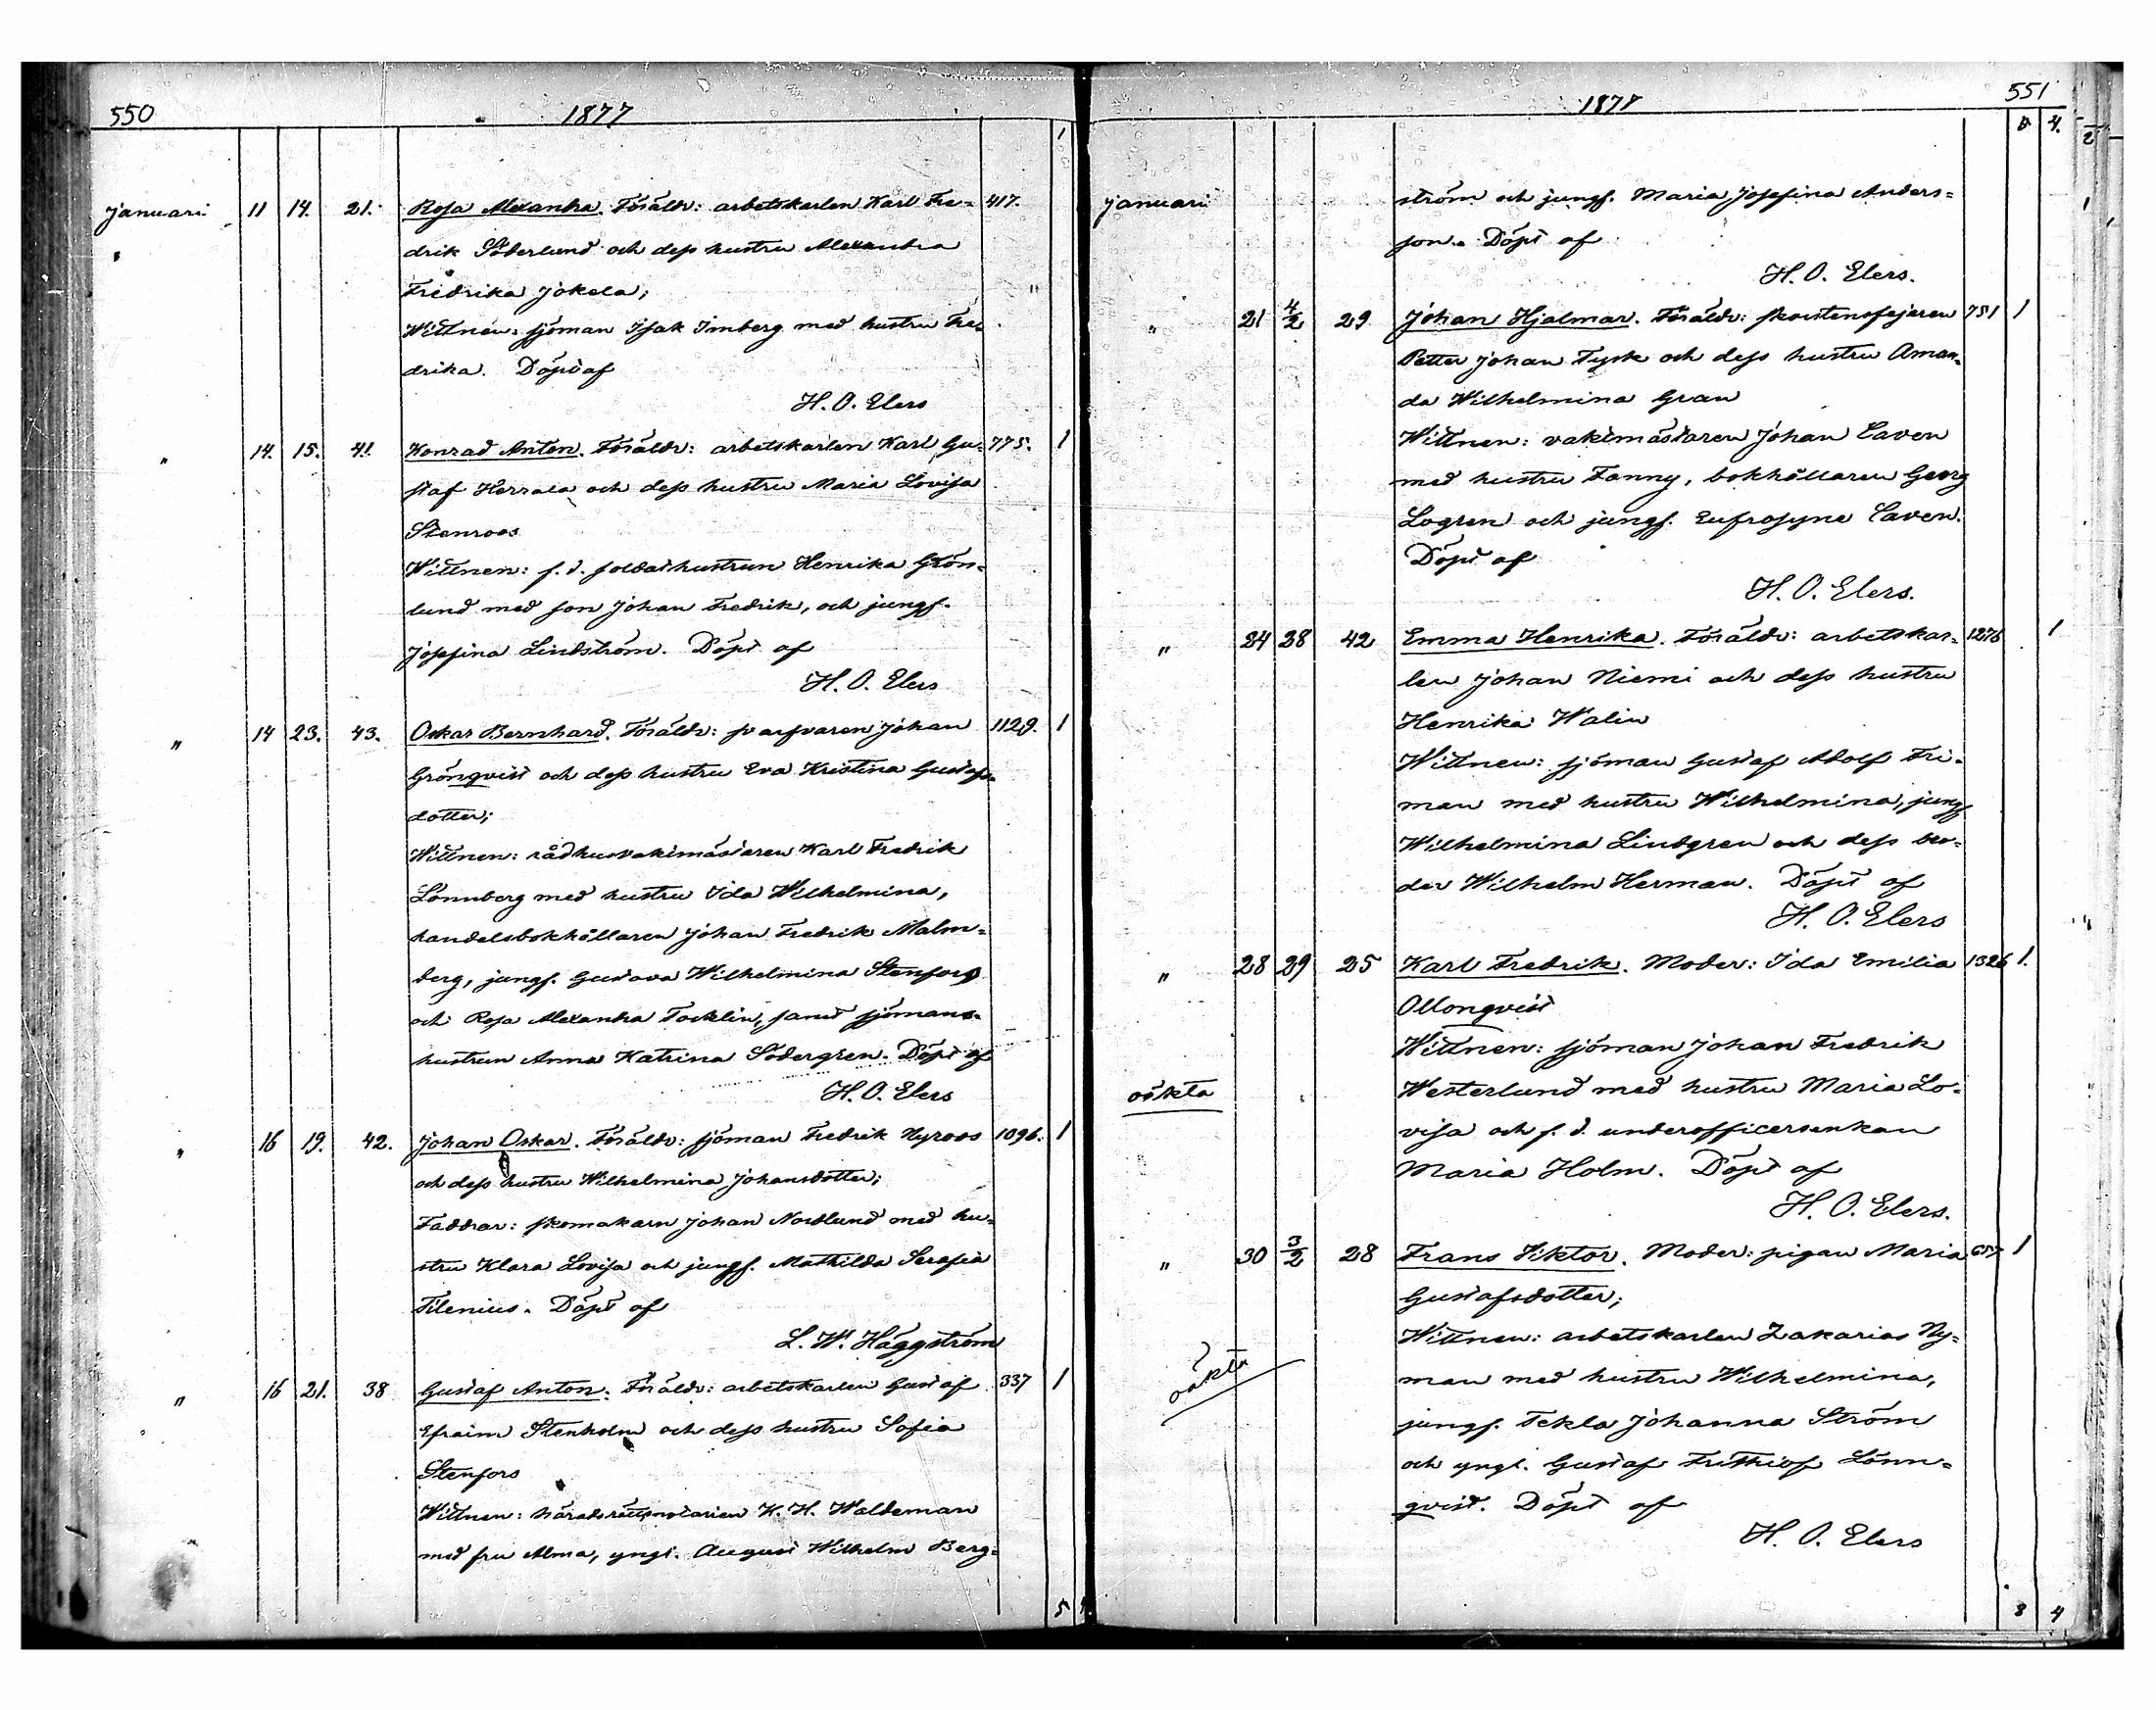 550
1877
1
januari 11 14. 21. Rosa Alexandra. Föräldr: arbetskarlen Karl Fre= 417.
drik Söderlund och dess hustru Alexandra
Fredrika Jokela;
Wittnen: sjöman Isak Imberg med hustru Fre=
drika. Döpt af
H. O. Elers
" 14. 15. 41. Konrad Anton. Föräldr: arbetskarlen Karl Gu= 775. 1
staf Herrala och dess hustru Maria Lovisa
Stenroos
Wittnen: f. d. soldathustrun Henrika Grön=
lund med son Johan Fredrik, och jungf.
Josefina Lindström. Döpt af
H. O. Elers
" 14 23. 43. Oskar Bernhard. Föräldr: svarfvaren Johan 1129. 1
Grönqvist och dess hustru Eva Kristina Gustafs=
dotter;
Wittnen: rådhusvaktmästaren Karl Fredrik
Lönnberg med hustru Ida Wilhelmina,
handelsbokhållaren Johan Fredrik Malm=
berg, jungf. Gustava Wilhelmina Stenfors
och Rosa Alexandra Tocklin, samt sjömans=
hustrun Anna Katrina Södergren. Döpt af
H. O. Elers
" 16 19. 42. Johan Oskar. Föräldr: sjöman Fredrik Nyroos 1096. 1
och dess hustru Wilhelmina Johansdotter;
Faddrar: skomakarn Johan Nordlund med hu=
stru Klara Lovisa och jungf. Mathilda Serafia
Filenius. Döpt af
L. W. Häggström
" 16 21. 38 Gustaf Anton. Föräldr: arbetskarlen Gustaf 337 1
Efraim Stenholm och dess hustru Sofia
Stenfors
Wittnen: häradsrättsnotarien K. H. Waldeman
med fru Alma, yngl. August Wilhelm Berg=
5
1877
551
4.
januari ström och jungf. Maria Josefina Anders=
son. Döpt af
H. O. Elers.
" 21 4/2 29 Johan Hjalmar. Föräldr: skorstensfejaren 751 1
Petter Johan Tysk och dess hustru Aman=
da Wilhelmina Gran
Wittnen: vaktmästaren Johan Caven
med hustru Fanny, bokhållaren Georg
Logren och jungf. Eufrosyne Caven.
Döpt af
H. O. Elers.
" 24 28 42 Emma Henrika. Föräldr: arbetskar= 1276 1
len Johan Niemi och dess hustru
Henrika Walin
Wittnen: sjöman Gustaf Adolf Fri=
man med hustru Wilhelmina, jungf
Wilhelmina Lindgren och dess bro=
der Wilhelm Herman. Döpt af
H. O. Elers
" 28 29 25 Karl Fredrik. Moder: Ida Emilia 1326 1.
Ollonqvist
Wittnen: sjöman Johan Fredrik
oäkta Westerlund med hustru Maria Lo=
visa och f. d. underofficersenkan
Maria Holm. Döpt af
H. O. Elers.
" 30 3/2 28 Frans Viktor. Moder: pigan Maria 657 1
Gustafsdotter;
Wittnen: arbetskarlen Zakarias Ny=
oäkta man med hustru Wilhelmina,
jungf. Tekla Johanna Ström
och yngl. Gustaf Frithiof Lönn=
qvist. Döpt af
H. O. Elers
3 4